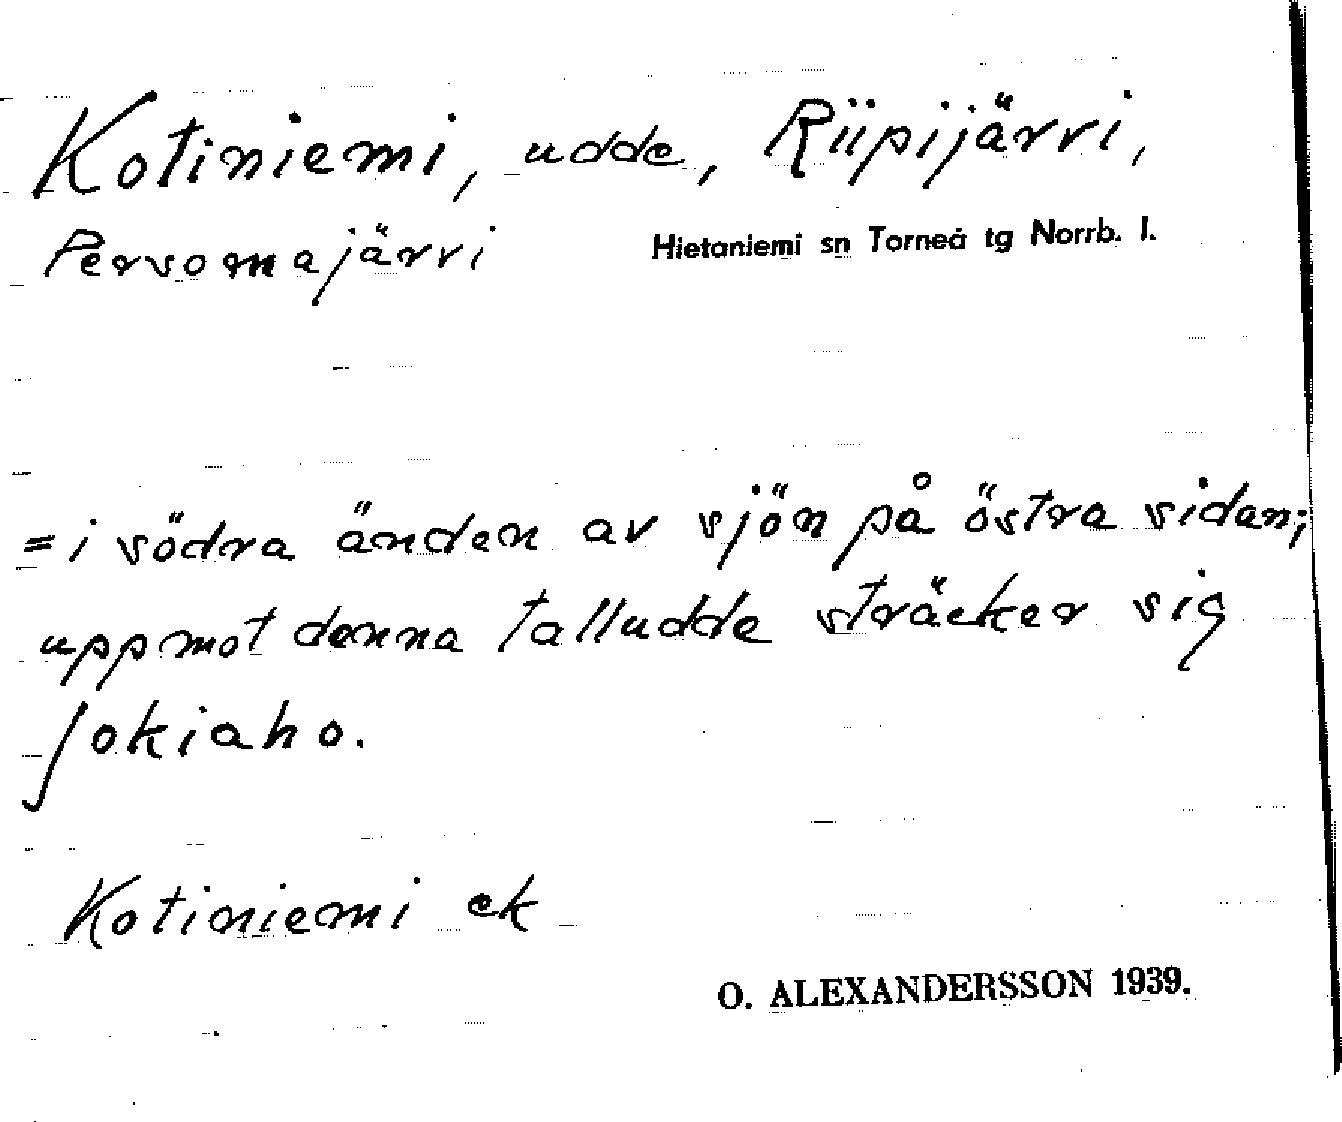 Kotiniemi, udde, Riipijärvi,
Persomajärvi Hietaniemi sn Torneå tg Norrb. l.
= i södra änden av sjön på östra sidan;
uppmot denna talludde sträcker sig
Jokiaho.
Kotiniemi ek
O. ALEXANDERSSON 1939.